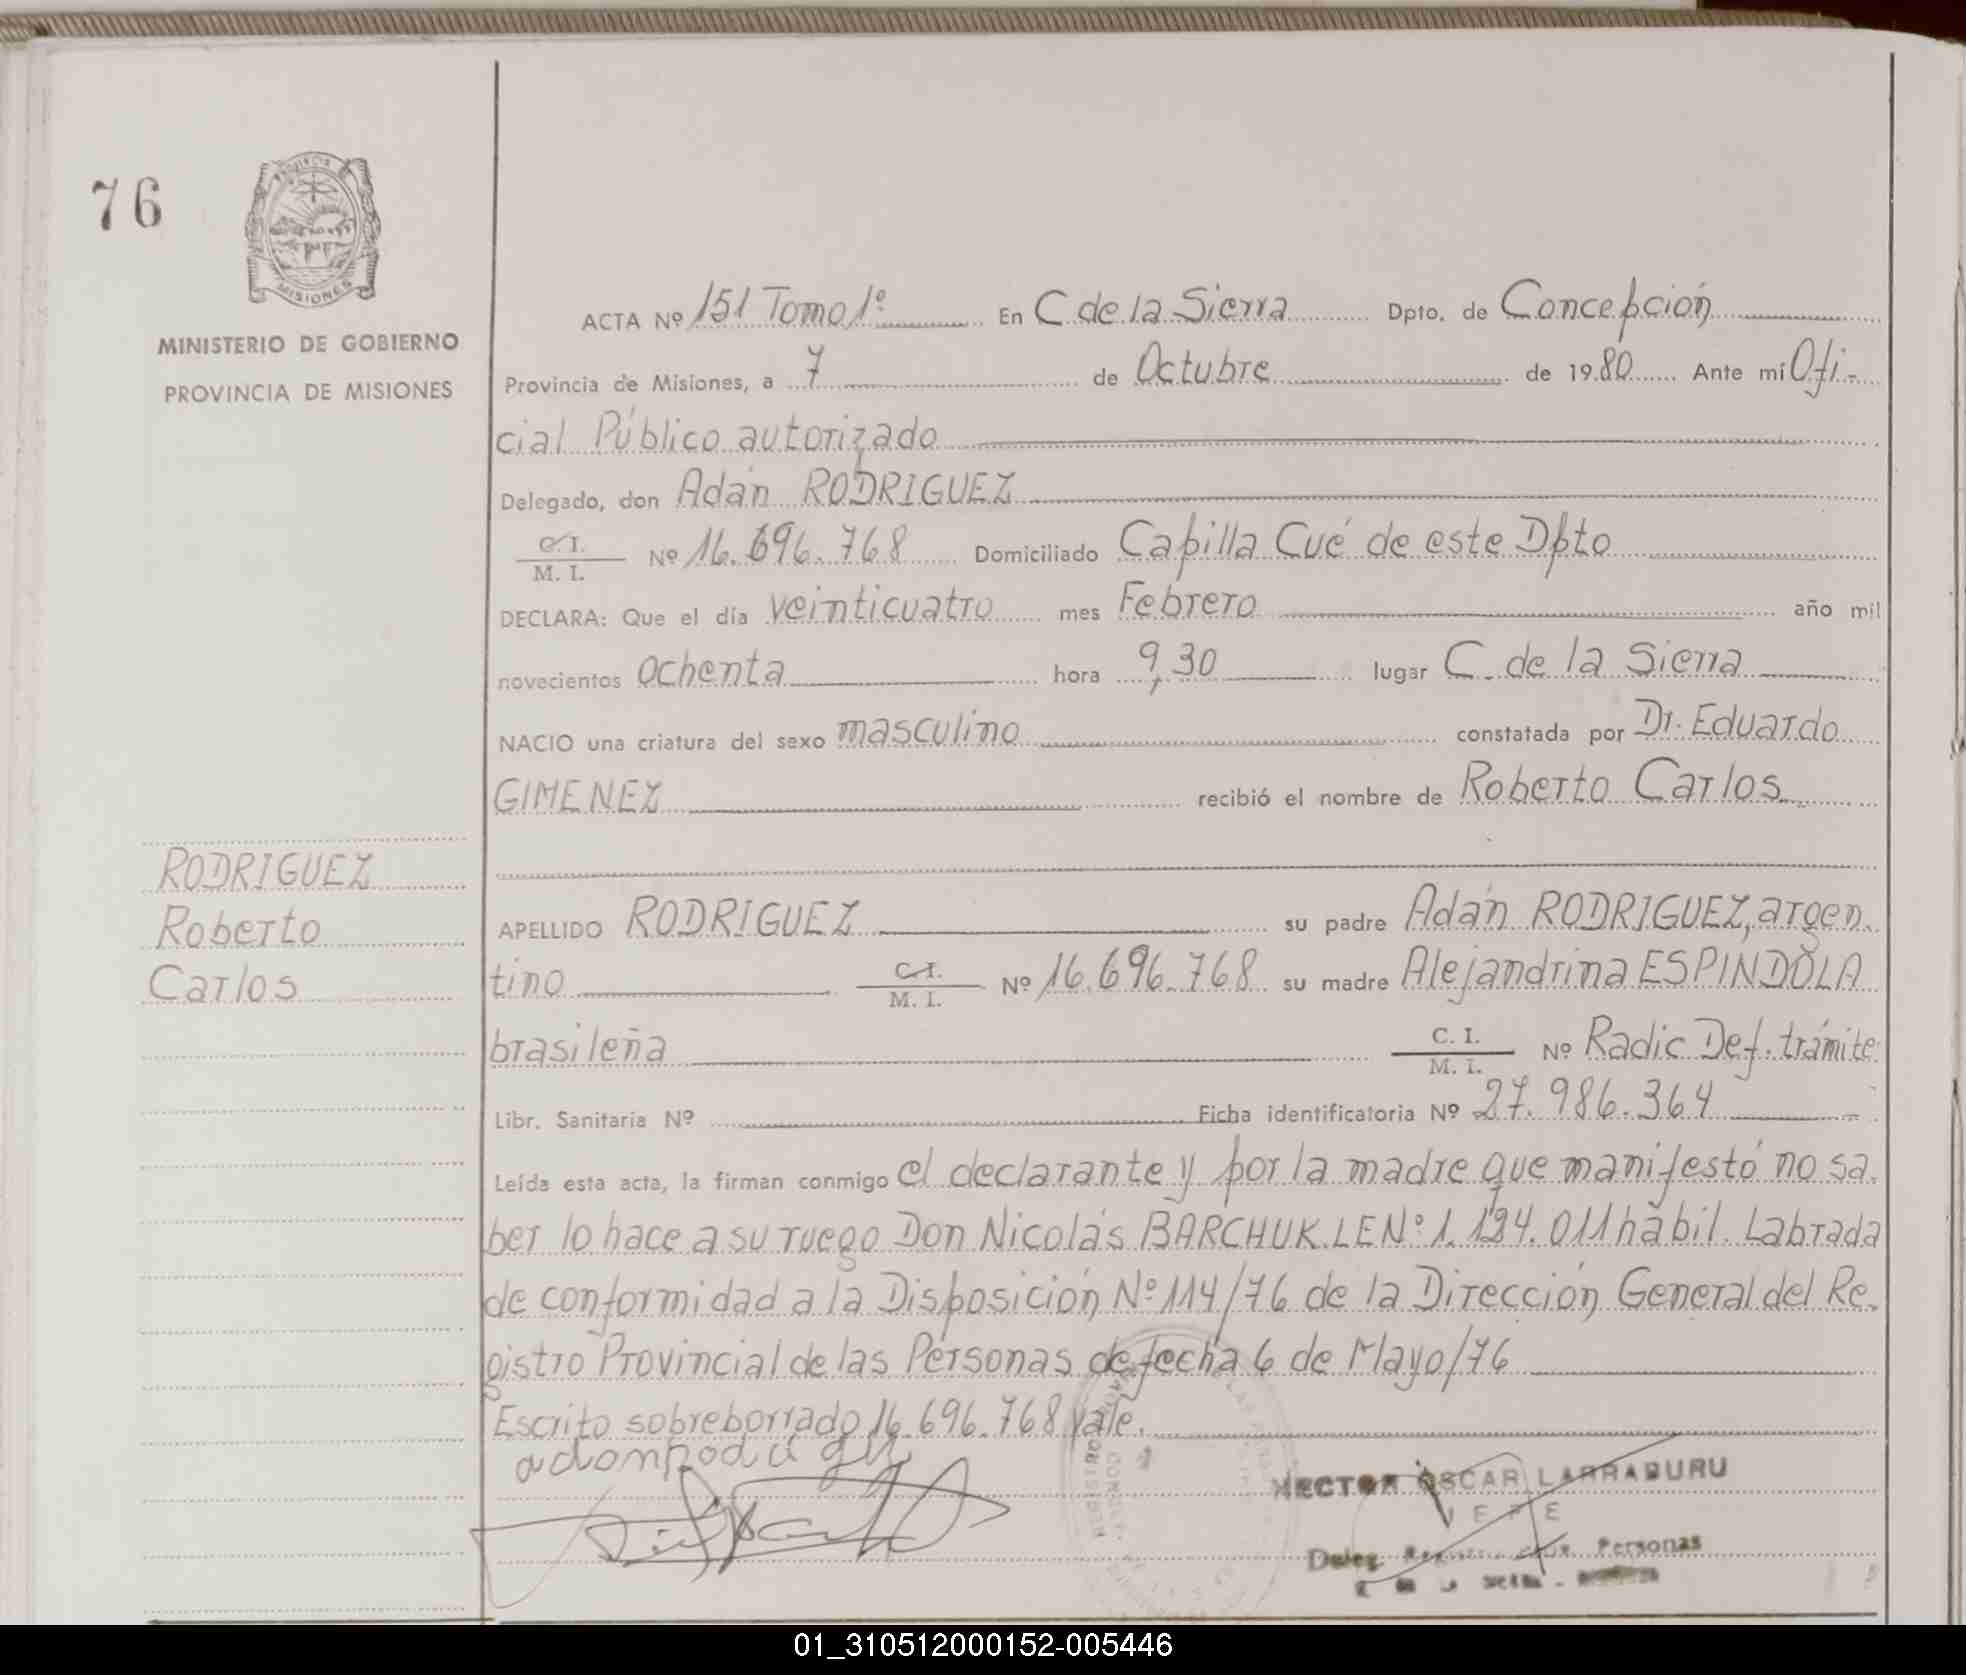 76
PROVINCIA
MISIONES
MINISTERIO DE GOBIERNO
PROVINCIA DE MISIONES
ACTA Nº 151 Tomo 1º En C de la Sierra Dpto. de Concepción
Provincia de Misiones, a 7 de Octubre de 1980 Ante mí Ofi-
cial Público autorizado
Delegado, don Adán RODRIGUEZ
C. I.
M. I. Nº 16.696.768 Domiciliado Capilla Cué de este Dpto
DECLARA: Que el día veinticuatro mes Febrero año mil
novecientos ochenta hora 9,30 lugar C. de la Sierra
NACIO una criatura del sexo masculino constatada por Dr. Eduardo
GIMENEZ recibió el nombre de Roberto Carlos
RODRIGUEZ
Roberto
Carlos
APELLIDO RODRIGUEZ su padre Adán RODRIGUEZ, argen.
tino C. I. M. I. Nº 16.696.768 su madre Alejandrina ESPINDOLA
brasileña C. I. M. I. Nº Radic Def. trámite
Libr. Sanitaria Nº Ficha identificatoria Nº 27.986.364
Leída esta acta, la firman conmigo el declarante y por la madre que manifestó no sa.
ber lo hace a su ruego Don Nicolás BARCHUK. LE Nº: 1.194.011 hábil. Labrada
de conformidad a la Disposición Nº 114/76 de la Dirección General del Re.
gistro Provincial de las Personas de fecha 6 de Mayo/76
Escrito sobreborrado 16.696.768 Vale.
HECTOR OSCAR LARRABURU
JEFE
Deleg. Personas
01_310512000152-005446